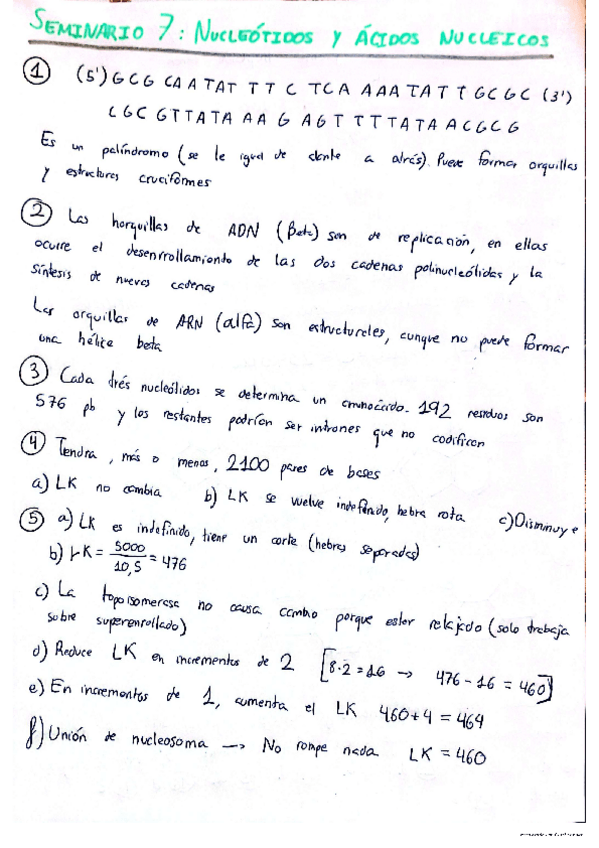 SEMINARIO 7: NUCLEÓTIDOS Y ÁCIDOS NUCLEICOS
① (5') GCG CAATAT TT C TCA AAATATT GCGC (3')
CGC GTTATA AA G AGT TTTATA ACGCG
Es un palíndromo (se le igual de dlante a atrás). Puede formar orquillas
y estructuras cruciformes
② Las horquillas de ADN (Beta) son de replicación, en ellas
ocurre el desenrrollamiento de las dos cadenas polinucleótidas y la
síntesis de nuevas cadenas
Las orquillas de ARN (alfa) son estructurales, aunque no puede formar
una hélice beta
③ Cada trés nucleótidos se determina un aminoácido. 192 residuos son
576 pb y los restantes podrían ser intrones que no codifican
④ Tendra, más o menos, 2100 pares de bases
a) LK no cambia b) LK se vuelve indefinido, hebra rota c) Disminuye
⑤ a) LK es indefinido, tiene un corte (hebras separadas)
b) LK = 5000/10,5 = 476
c) La topoisomerasa no causa cambio porque estar relajado (solo trabaja
sobre superenrollado)
d) Reduce LK en incrementos de 2 [8·2=16 → 476-16 = 460]
e) En incrementos de 1, aumenta el LK 460+4 = 464
f) Unión de nucleosoma → No rompe nada LK = 460